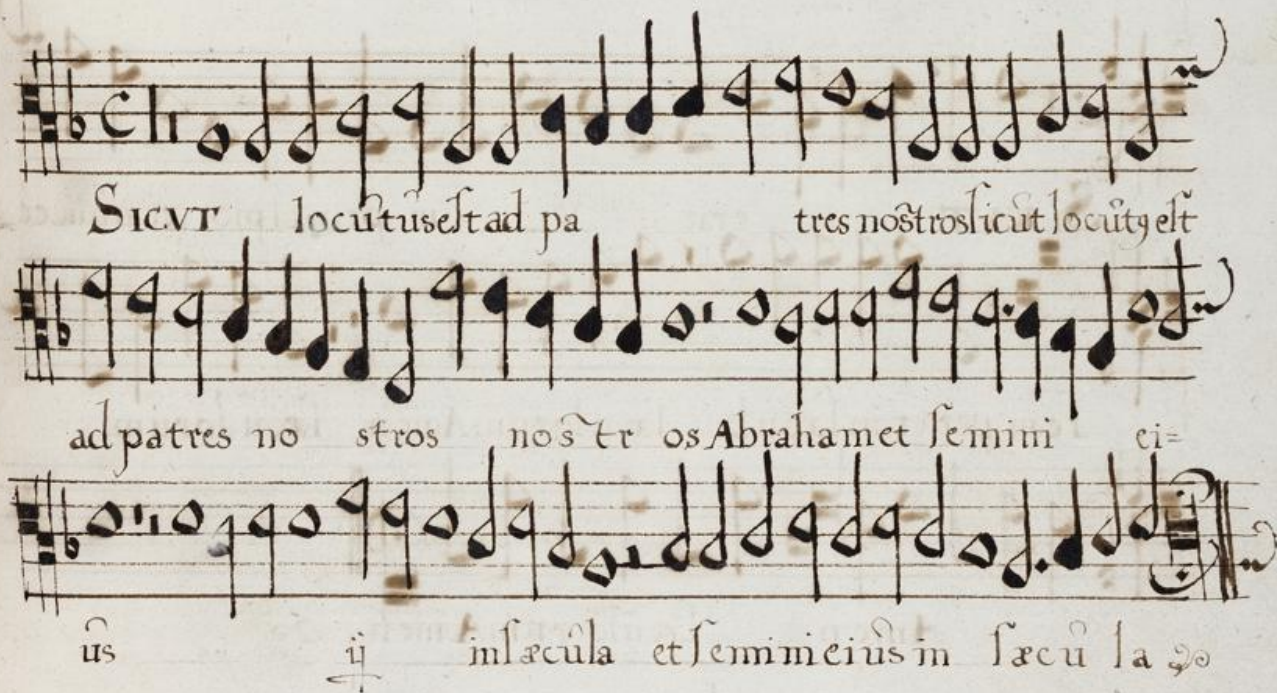 SICVT locūtusest ad pa tres nostros sicut locūtꝰ est
ad patres no stros nostr os Abraham et semini ei=
ūs ij in sæcūla et semini eiūs in sæcū la